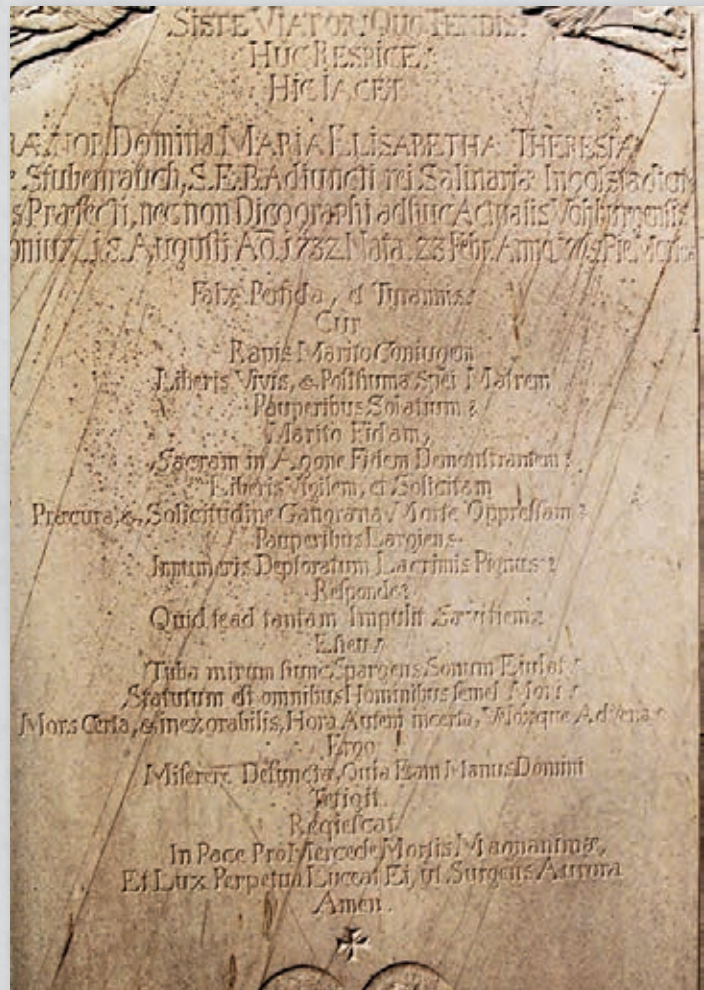 SISTE VIATOR! QUO TENDIS?
HUC RESPICE!
HIC IACET
PRÆNOB Domina MARIA ELISABETHA THERESIA
Stubenrauch, S.E.B. Adiuncti rei Salinariæ Ingolstadien
s Præfecti, nec non Dicographi adhuc Actualis Vohburgensis
oniux 18 Augusti Aō 1732 Nata. 23 Febr. Anno Pie
Falx Perfida, et Tyrannis!
Cur
Rapis Marito Coniugem
Liberis Vivis, & Posthumæ Spei Matrem
Pauperibus Solatium?
Marito Fidam,
Sacram in Agone Fidem Demonstrantem?
Liberis Vigilem, et Solicitam
Præ cura, &, Solicitudine Morte Oppressam?
Pauperibus Largiens
Innumeris Deploratum Lacrimis Pignus?
Responde?
Quid te ad tantam Impulit Sævitiem?
Eheu!
Tuba mirum hunc Spargens Sonum Eiulat!
Statutum est omnibus Hominibus semel Mori!
Mors Certa, & inexorabilis, Hora Autem incerta, Veloxque
Ergo!
Miserere Defunctæ, Quia Eam Manus Domini
Tetigit.
Reqiescat
In Pace Pro Mercede Mortis Magnanimæ,
Et Lux Perpetua Luceat Ei, ut Surgens Aurora
Amen.